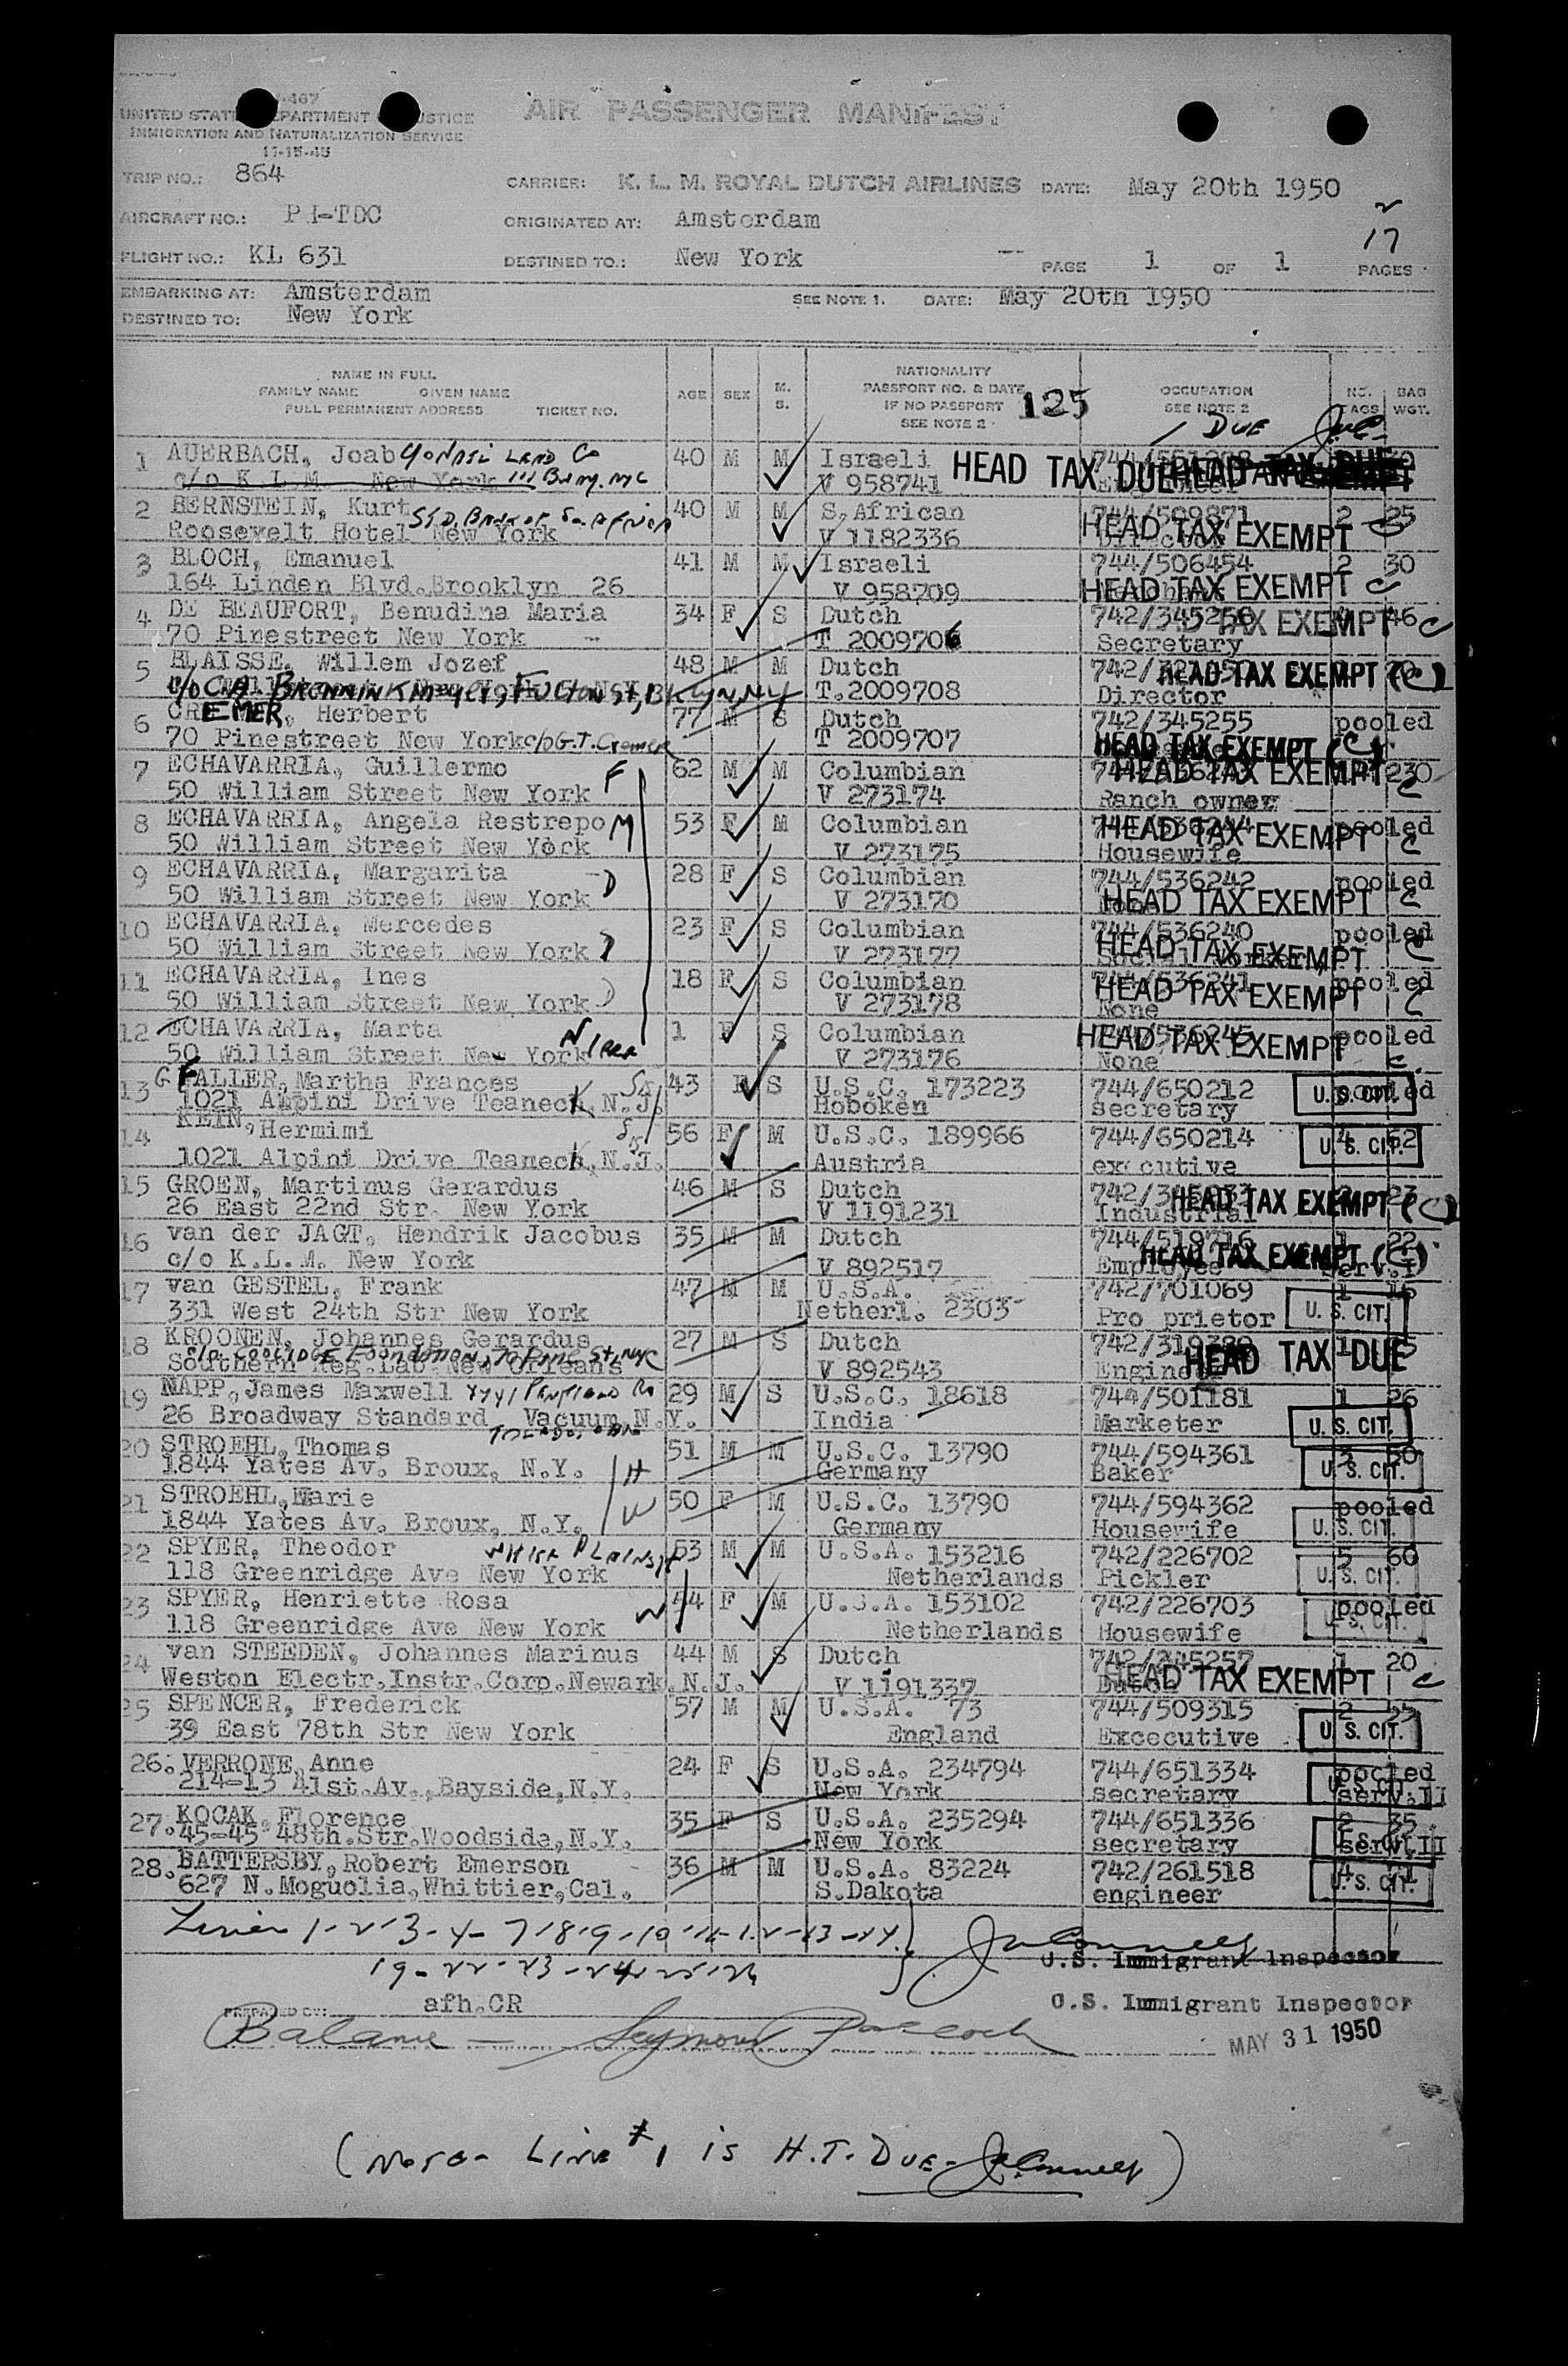 I-467
UNITED STATES DEPARTMENT OF JUSTICE
IMMIGRATION AND NATURALIZATION SERVICE
11-15-45
AIR PASSENGER MANIFEST
TRIP NO.: 864
CARRIER: K. L. M. ROYAL DUTCH AIRLINES DATE: May 20th 1950
AIRCRAFT NO.: PH-TDC
ORIGINATED AT: Amsterdam
17
FLIGHT NO.: KL 631
DESTINED TO.: New York
PAGE 1 OF 1 PAGES
EMBARKING AT: Amsterdam
SEE NOTE 1. DATE: May 20th 1950
DESTINED TO: New York
NAME IN FULL
FAMILY NAME GIVEN NAME
FULL PERMANENT ADDRESS TICKET NO.
AGE SEX M. S.
NATIONALITY
PASSPORT NO. & DATE
IF NO PASSPORT
SEE NOTE 2
125
OCCUPATION
SEE NOTE 2
NO. BAGS BAG WGT.
1 DUE
1 AUERBACH, Joab 40 M M Israeli
c/o K.L.M. New York 111 Bwny. NYC V 958741 HEAD TAX DUE
2 BERNSTEIN, Kurt 40 M M S.African 744/509871 2 25
Roosevelt Hotel New York V 1182336 HEAD TAX EXEMPT C
3 BLOCH, Emanuel 41 M M Israeli 744/506454 2 30
164 Linden Blvd.Brooklyn 26 V 958709 HEAD TAX EXEMPT C
4 DE BEAUFORT, Benudina Maria 34 F S Dutch 742/345256 46
70 Pinestreet New York T 2009706 Secretary TAX EXEMPT C
5 BLAISSE, Willem Jozef 48 M M Dutch HEAD TAX EXEMPT (C)
T.2009708 Director
6 CREMER, Herbert 77 M S Dutch 742/345255 pooled
70 Pinestreet New York c/o G.T. Cremer T 2009707 HEAD TAX EXEMPT (C)
7 ECHAVARRIA, Guillermo F 62 M M Columbian HEAD TAX EXEMPT 230
50 William Street New York V 273174 Ranch owner C
8 ECHAVARRIA, Angela Restrepo M 53 F M Columbian 744/536244 pooled
50 William Street New York V 273175 Housewife HEAD TAX EXEMPT C
9 ECHAVARRIA, Margarita D 28 F S Columbian 744/536242 pooled
50 William Street New York V 273170 HEAD TAX EXEMPT C
10 ECHAVARRIA, Mercedes 23 F S Columbian 744/536240 pooled
50 William Street New York V 273177 HEAD TAX EXEMPT C
11 ECHAVARRIA, Ines 18 F S Columbian 744/536241 pooled
50 William Street New York V 273178 None HEAD TAX EXEMPT C
12 ECHAVARRIA, Marta 1 F S Columbian 744/536245 pooled
50 William Street New York V 273176 None HEAD TAX EXEMPT C
13 GFALLER, Martha Frances 43 F S U.S.C. 173223 744/650212 pooled
1021 Alpini Drive Teaneck, N.J. Hoboken secretary U.S. CIT.
14 KEIN, Hermimi 56 F M U.S.C. 189966 744/650214 4 52
1021 Alpini Drive Teaneck, N.J. Austria executive U.S. CIT.
15 GROEN, Martinus Gerardus 46 M S Dutch
26 East 22nd Str. New York V 1191231 Industrial HEAD TAX EXEMPT (C)
16 van der JAGT, Hendrik Jacobus 35 M M Dutch 744/519716 1 22
c/o K.L.M. New York V 892517 Employee HEAD TAX EXEMPT (C)
17 van GESTEL, Frank 47 M M U.S.A. 742/701069
331 West 24th Str New York Netherl. 2303 Pro prietor U.S. CIT.
18 KROONEN, Johannes Gerardus 27 M S Dutch 742/319380
Southern Reg.Lab.New Orleans V 892543 Engineer HEAD TAX DUE
19 NAPP, James Maxwell 29 M S U.S.C. 18618 744/501181 1 26
26 Broadway Standard Vacuum N.Y. India Marketer U.S. CIT.
TOLEDO, OHIO
20 STROEHL, Thomas H 51 M M U.S.C. 13790 744/594361 3 50
1844 Yates Av. Broux, N.Y. Germany Baker U.S. CIT.
21 STROEHL, Marie W 50 F M U.S.C. 13790 744/594362 pooled
1844 Yates Av. Broux, N.Y. Germany Housewife U.S. CIT.
22 SPYER, Theodor White Plains 53 M M U.S.A. 153216 742/226702 5 60
118 Greenridge Ave New York Netherlands Pickler U.S. CIT.
23 SPYER, Henriette Rosa W 44 F M U.S.A. 153102 742/226703 pooled
118 Greenridge Ave New York Netherlands Housewife U.S. CIT.
24 van STEEDEN, Johannes Marinus 44 M S Dutch 742/345257 1 20
Weston Electr.Instr.Corp.Newark N.J. V 1191337 HEAD TAX EXEMPT C
25 SPENCER, Frederick 57 M M U.S.A. 73 744/509315 2 55
39 East 78th Str New York England Excecutive U.S. CIT.
26. VERRONE, Anne 24 F S U.S.A. 234794 744/651334 pooled
214-13 41st.Av., Bayside, N.Y. New York secretary serv.II
27. KOCAK, Florence 35 F S U.S.A. 235294 744/651336 2 35
45-45 48th.Str.Woodside, N.Y. New York secretary serv.II
28. BATTERSBY, Robert Emerson 36 M M U.S.A. 83224 742/261518 4 71
627 N.Moguolia, Whittier, Cal. S.Dakota engineer U.S. CIT.
Lines 1-2-3-4-7-8-9-10-11-12-13-14
19-22-23-24-25-26
U.S. Immigrant Inspector
PREPARED BY: afh.CR
U.S. Immigrant Inspector
Balance — Seymour
MAY 31 1950
(Note- Line #1 is H.T. Due-)